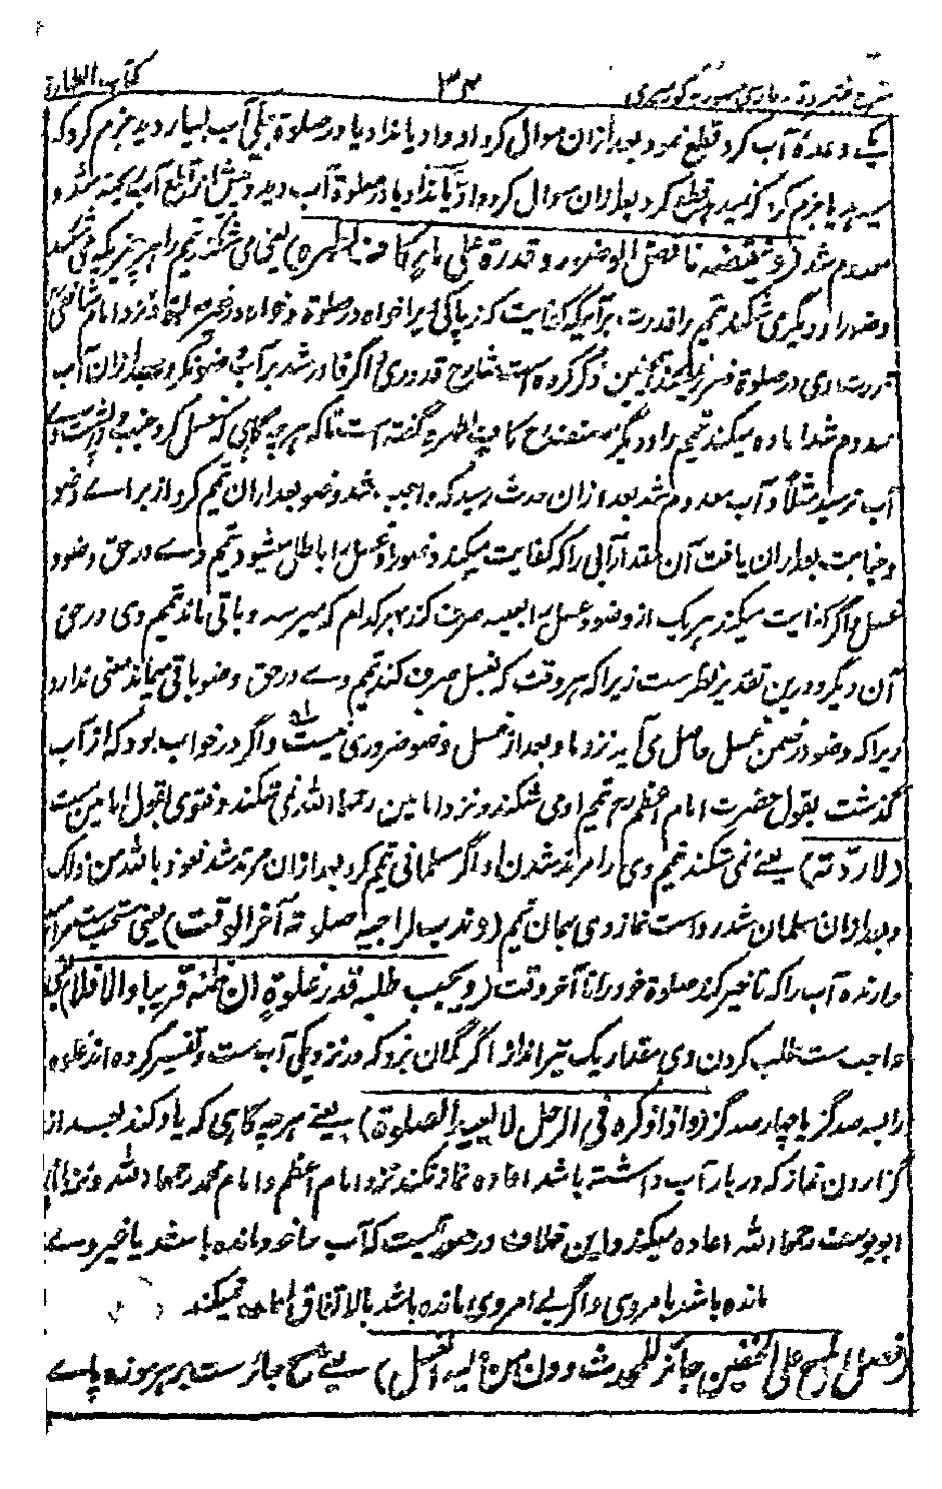 کتاب الطهارة
۳۴
شرح مختصر وقایه فارسی
یک وعدهٔ آب کرد قطع نمود بعد ازان سوال کرد او داد یا نداد یا در صلوة جبلی آب بسیار دید جزم کرد که
میدهد یا جزم کرد که نمیدهد قطع کرد بعد ازان سوال کرد و داد یا نداد یا در صلوة آب دید و پیش از قطع آب ریخته شد و
معدوم شد (وینقضه ناقض الوضوء وقدرة علی ماءٍ کاف لطهره) یعنی می شکند تیمم را هر چیزیکه می شکند
وضو را و دیگری شکند تیمم را قدرت بر آبیکه کفایت کند پاکی او را خواه در صلوة و خواه در غیر صلوة و نزد امام شافعی
قدرت وی در صلوة ذکر کرده است شارح قدوری اگر قادر شد بر آب وضو نکرد و بعد ازان آب
معدوم شد اعاده میکند تیمم را و دیگر مصنف رح کاف لطهره گفته است تا که هر چه گاهی که غسل کرد جنب و
آب نرسید مثلاً و آب معدوم شد بعد ازان حدث رسید که واجب شد وضو بعد ازان تیمم کرد از برائے وضو
و جنابت بعد ازان یافت آن مقدار آبی را که کفایت میکند وضو را و غسل را باطل میشود تیمم وے در حق وضو و
غسل و اگر کفایت میکند هر یک از وضو و غسل را صرف کند بهر کدام که میرسد و باقی ماند تیمم وی در حق
آن دیگر و درین تقدیر نظرست زیرا که هر وقت که بغسل صرف کند تیمم وے در حق وضو باقی میماند معنی ندارد
زیرا که وضو در ضمن غسل حاصل می آید نزد ما و بعد از غسل وضو ضروری نیست و اگر در خواب بود که از آب
گذشت بقول حضرت امام اعظم رح تیمم او می شکند و نزد امامین رحمهما الله نمی شکند و فتوی بقول امامین ست
(لا ردّته) یعنے نمی شکند تیمم وی را مرتد شدن او اگر مسلمانی تیمم کرد بعد ازان مرتد شد نعوذ بالله من ذلک
و بعد ازان مسلمان شد رواست نماز وی بهمان تیمم (وندب لراجیه صلوته آخر الوقت) یعنی مستحب ست مر امید
دارنده آب را که تاخیر کند صلوة خود را تا آخر وقت (ویجب طلبه قدر غلوةٍ ان ظنه قریبا والا فلا)
واجب ست طلب کردن وی مقدار یک تیر انداز اگر گمان برد که در نزدیکی آب ست و تفسیر کرده اند غلوه
را بسه صد گز یا چهار صد گز (واذا ذکره فی الرحل لا یعید الصلوة) یعنے هر چه گاهی که یاد کند بعد از
گزاردن نماز که در بار آب داشته باشد اعاده نماز نکند نزد امام اعظم و امام محمد رحمهما الله و نزد امام
ابو یوسف رحمه الله اعاده میکند و این خلاف در صورتیست که آب را خود مانده باشد یا غیر وے
مانده باشد بامر وی و اگر بے امر وی مانده باشد بالاتفاق اعاده نمیکند
(فصل المسح علی الخفین جائز للمحدث دون من علیه الغسل) یعنے مسح جائز ست بر هر موزه پاے